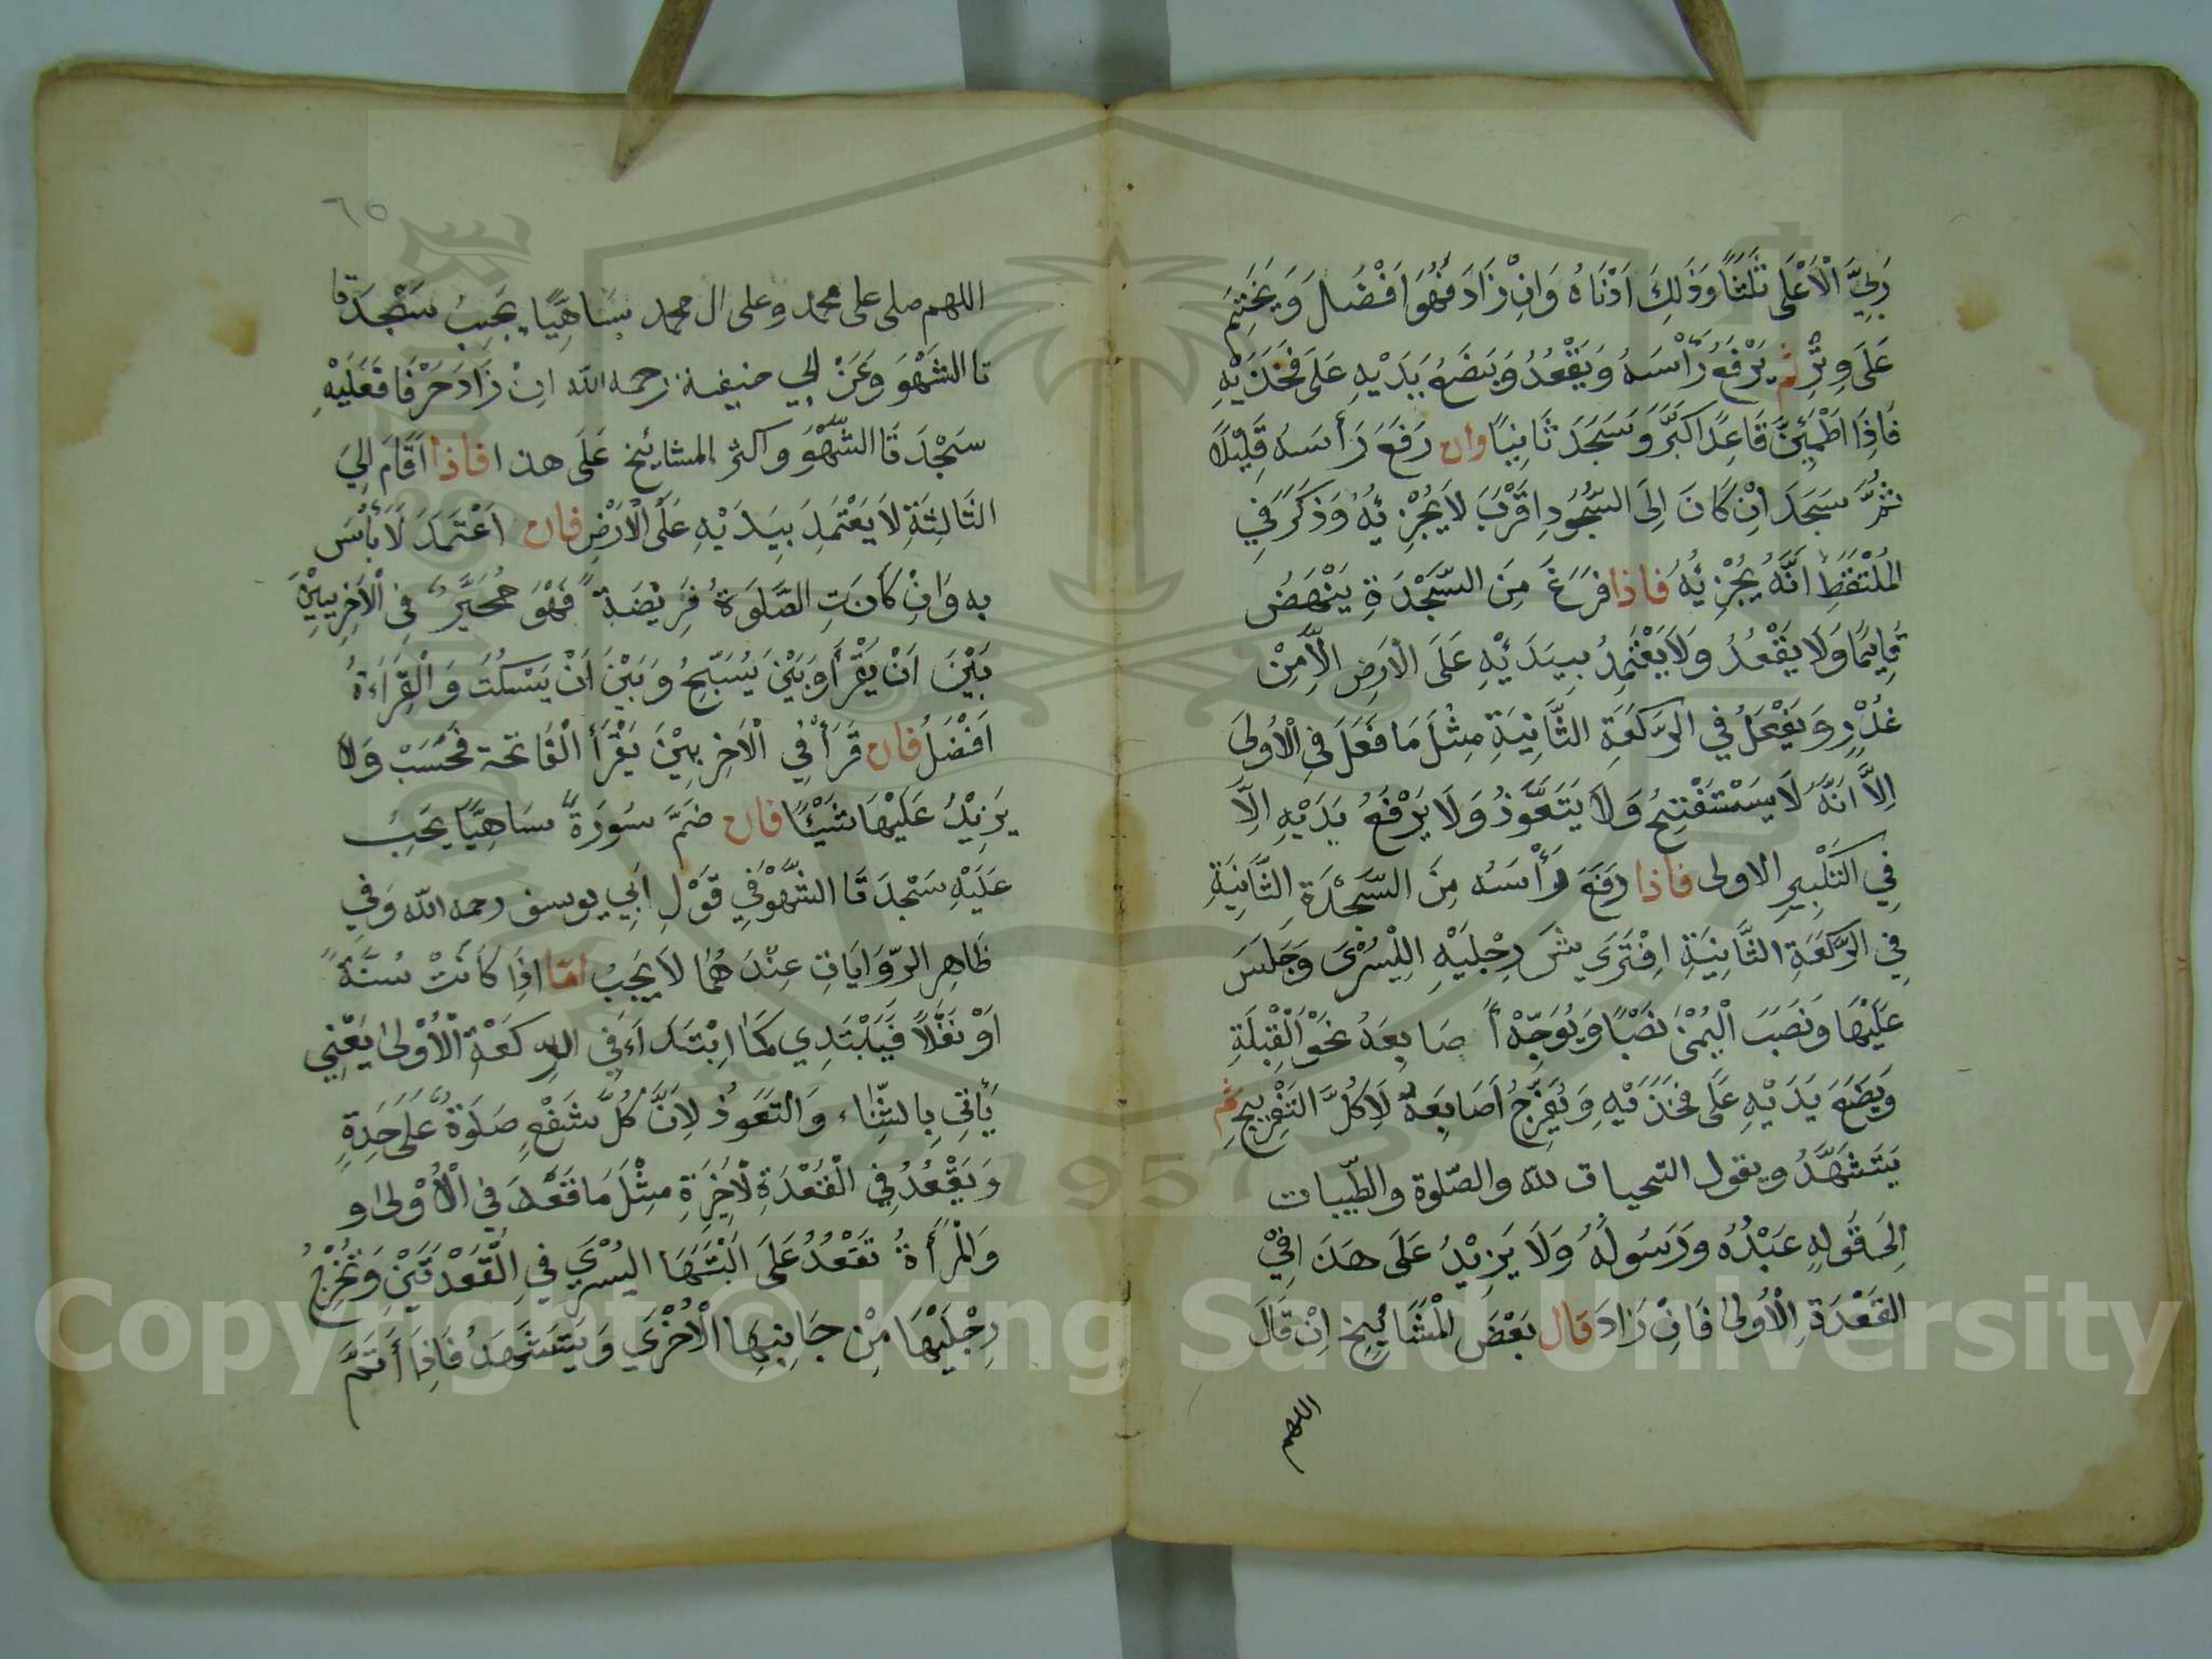 رَبِّيَ الْاَعْلَى ثَلٰثًا وَذٰلِكَ اَدْنَاهُ وَاِنْ زَادَ فَهُوَ اَفْضَلُ وَيَخْتِمُ
عَلَى وِتْرٍ ثم يَرْفَعُ رَأْسَهُ وَيَقْعُدُ وَيَضَعُ يَدَيْهِ عَلَى فَخَذَيْهِ
فَاِذَا اطْمَئِنَّ قَاعِدًا كَبَّرَ وَسَجَدَ ثَانِيًا وان رَفَعَ رَأْسَهُ قَلِيْلًا
ثُمَّ سَجَدَ اِنْ كَانَ اِلَى السُّجُودِ اَقْرَبَ لَا يُجْزِئُهُ وَذَكَرَ فِي
الْمُلْتَقَطِ اَنَّهُ يُجْزِئُهُ فاذا فَرَغَ مِنَ السَّجْدَةِ يَنْهَضُ
قَايِمًا وَلَا يَقْعُدُ وَلَا يَعْتَمِدُ بِيَدَيْهِ عَلَى الْاَرْضِ اِلَّا مِنْ
عُذْرٍ وَيَفْعَلُ فِي الرَّكْعَةِ الثَّانِيَةِ مِثْلَ مَا فَعَلَ فِي الْاُولَى
اِلَّا اَنَّهُ لَا يَسْتَفْتِحُ وَلَا يَتَعَوَّذُ وَلَا يَرْفَعُ يَدَيْهِ اِلَّا
فِي التَّكْبِيرِ الاولى فاذا رَفَعَ رَأْسَهُ مِنَ السَّجْدَةِ الثَّانِيَةِ
فِي الرَّكْعَةِ الثَّانِيَةِ اِفْتَرَى شَ رِجْلَيْهِ الْيُسْرَى وَجَلَسَ
عَلَيْهَا وَنَصَبَ الْيُمْنٰى نَصْبًا وَيُوَجِّهُ اَصَابِعَهُ نَحْوَ الْقِبْلَةِ
وَيَضَعَ يَدَيْهِ عَلَى فَخَذَيْهِ وَيُفَرِّجُ اَصَابِعَهُ لَا كُلَّ التَّفْرِيجِ ثم
يَتَشَهَّدُ ويقول التحيات لله والصّلوة والطّيبات
اِلَى قَوْلِهِ عَبْدُهُ وَرَسُولُهُ وَلَا يَزِيْدُ عَلَى هَذَا فِيْ
الْقَعْدَةِ الْاُولٰى فَاِنْ زَادَ قال بَعْضَ الْمَشَائِخِ اِنْ قَالَ
اللهم
٦٥
اللهم صلى على محمد وعلى ال محمد سَاهِيًا يَجِبُ سَجْدَةً
تا السَّهْوَ وَعَنْ ابي حنيفة رحمه الله اِنْ زَادَ حَرْفًا فَعَلَيْهِ
سَجْدَتَا السَّهْوَ واكثر المشايخ عَلَى هذا فاذا اَقَامَ اِلَى
الثَّالِثَةِ لَا يَعْتَمِدَ بِيَدَيْهِ عَلَى الْاَرْضِ فان اعْتَمَدَ لَا بَأْسَ
بِهِ وَاِنْ كَانَتِ الصَّلَوةُ فَرِيْضَةً فَهُوَ مُخَيَّرٌ فِي الْاَخِرِيَيْنِ
بَيْنَ اَنْ يَقْرَأَ وَبَيْنَ يُسَبِّحُ وَبَيْنَ اَنْ يَسْكُتَ وَالْقِرَاءَةُ
اَفْضَلُ فان قَرَأَ فِي الْاَخِرِيَيْنَ يَقْرَأَ الْفَاتحة فَحَسَبْ وَلَا
يَزِيْدُ عَلَيْهَا شَيْئًا فان ضَمَّ سُورَةً سَاهِيًا يَجِبُ
عَلَيْهِ سَجْدَتَا السَّهْوُ فِي قَوْلِ اَبِي يوسف رحمه الله وَفِي
ظَاهِرِ الرِّوَايَاتِ عِنْدَ هُمَا لَا يَجِبُ اما اِذَا كَانَتْ سُنَّةً
اَوْ نَفْلًا فَيَبْتَدِي كَمَا ابْتَدَاءَ فِي الرِّكْعَةِ الْاُوْلٰى يَعْنِي
يَأْتِي بِالثَّنَاء وَالتَّعَوُّذِ لِاَنَّ كُلَّ شَفْعٍ صَلَوةٌ عَلَى حَدَةٍ
وَيَقْعُدُ فِي الْقَعْدَةِ الْاَخِيْرَةِ مِثْلَ مَا قَعَدَ فِي الْاُوْلٰى و
وَالْمَرْأَةُ تَقْعُدُ عَلَى اَلْيَتَهَا الْيُسْرَى فِي الْقَعْدَتَيْنِ وَتُخْرِجُ
رِجْلَيْهَا مِنْ جَانِبِهَا الْاُخْرَى وَيَتَشَهَّدُ فَاِذَا اَتَمَّ
Copyright © King Saud University
1957